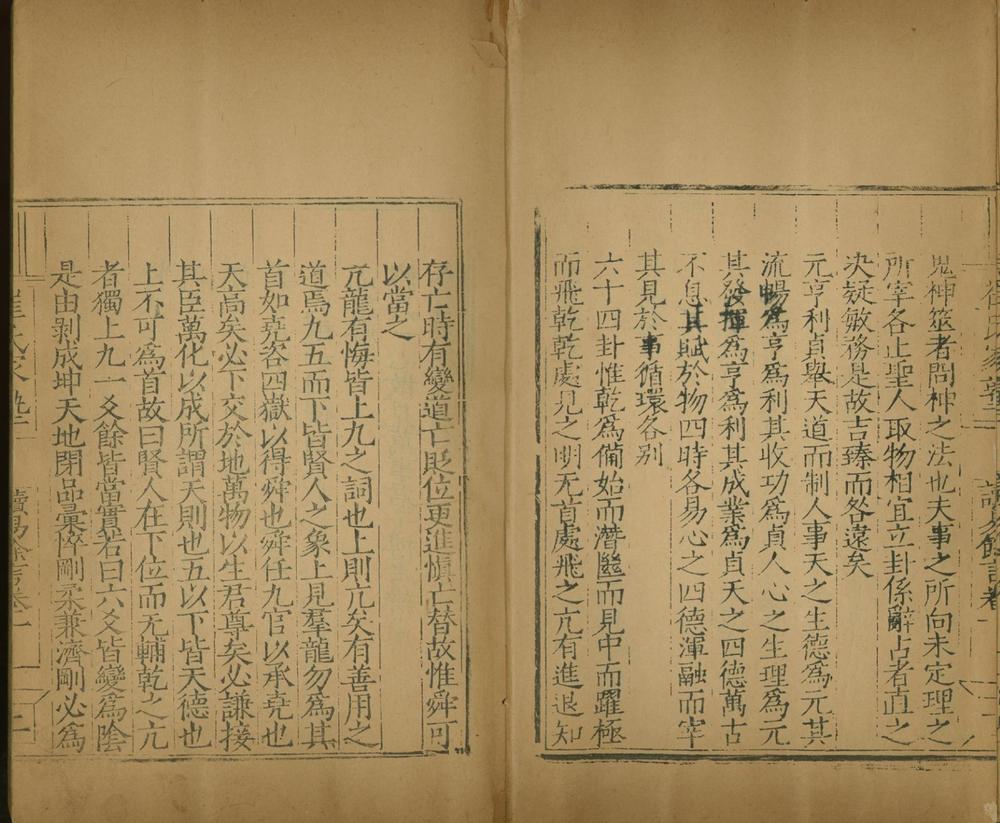 鬼神筮者問神之法也夫事之所向未定理之
所宰各止聖人取物相宜立卦係辭占者直之
决疑敏務是故吉臻而咎遠矣
元亨利貞舉天道而制人事天之生德爲元其
流暢爲亨爲利其收功爲貞人心之生理爲元
其發揮爲亨爲利其成業爲貞天之四德萬古
不息其賦於物四時各易心之四德渾融而宰
其見於事循環各別
六十四卦惟乾爲備始而潛繼而見中而躍極
而飛乾乾處見之明无首處飛之亢有進退知
存亡時有變道亡貶位更進愼亡替故惟舜可
以當之
亢龍有悔皆上九之詞也上則亢矣有善用之
道焉九五而下皆賢人之象上見羣龍勿爲其
首如堯咨四嶽以得舜也舜任九官以承堯也
天高矣必下交於地萬物以生君尊矣必謙接
其臣萬化以成所謂天則也五以下皆天德也
上不可爲首故曰賢人在下位而无輔乾之亢
者獨上九一爻餘皆當實若曰六爻皆變爲陰
是由剝成坤天地閉品彙悴剛柔兼濟剛必爲
讀易餘言卷一
二